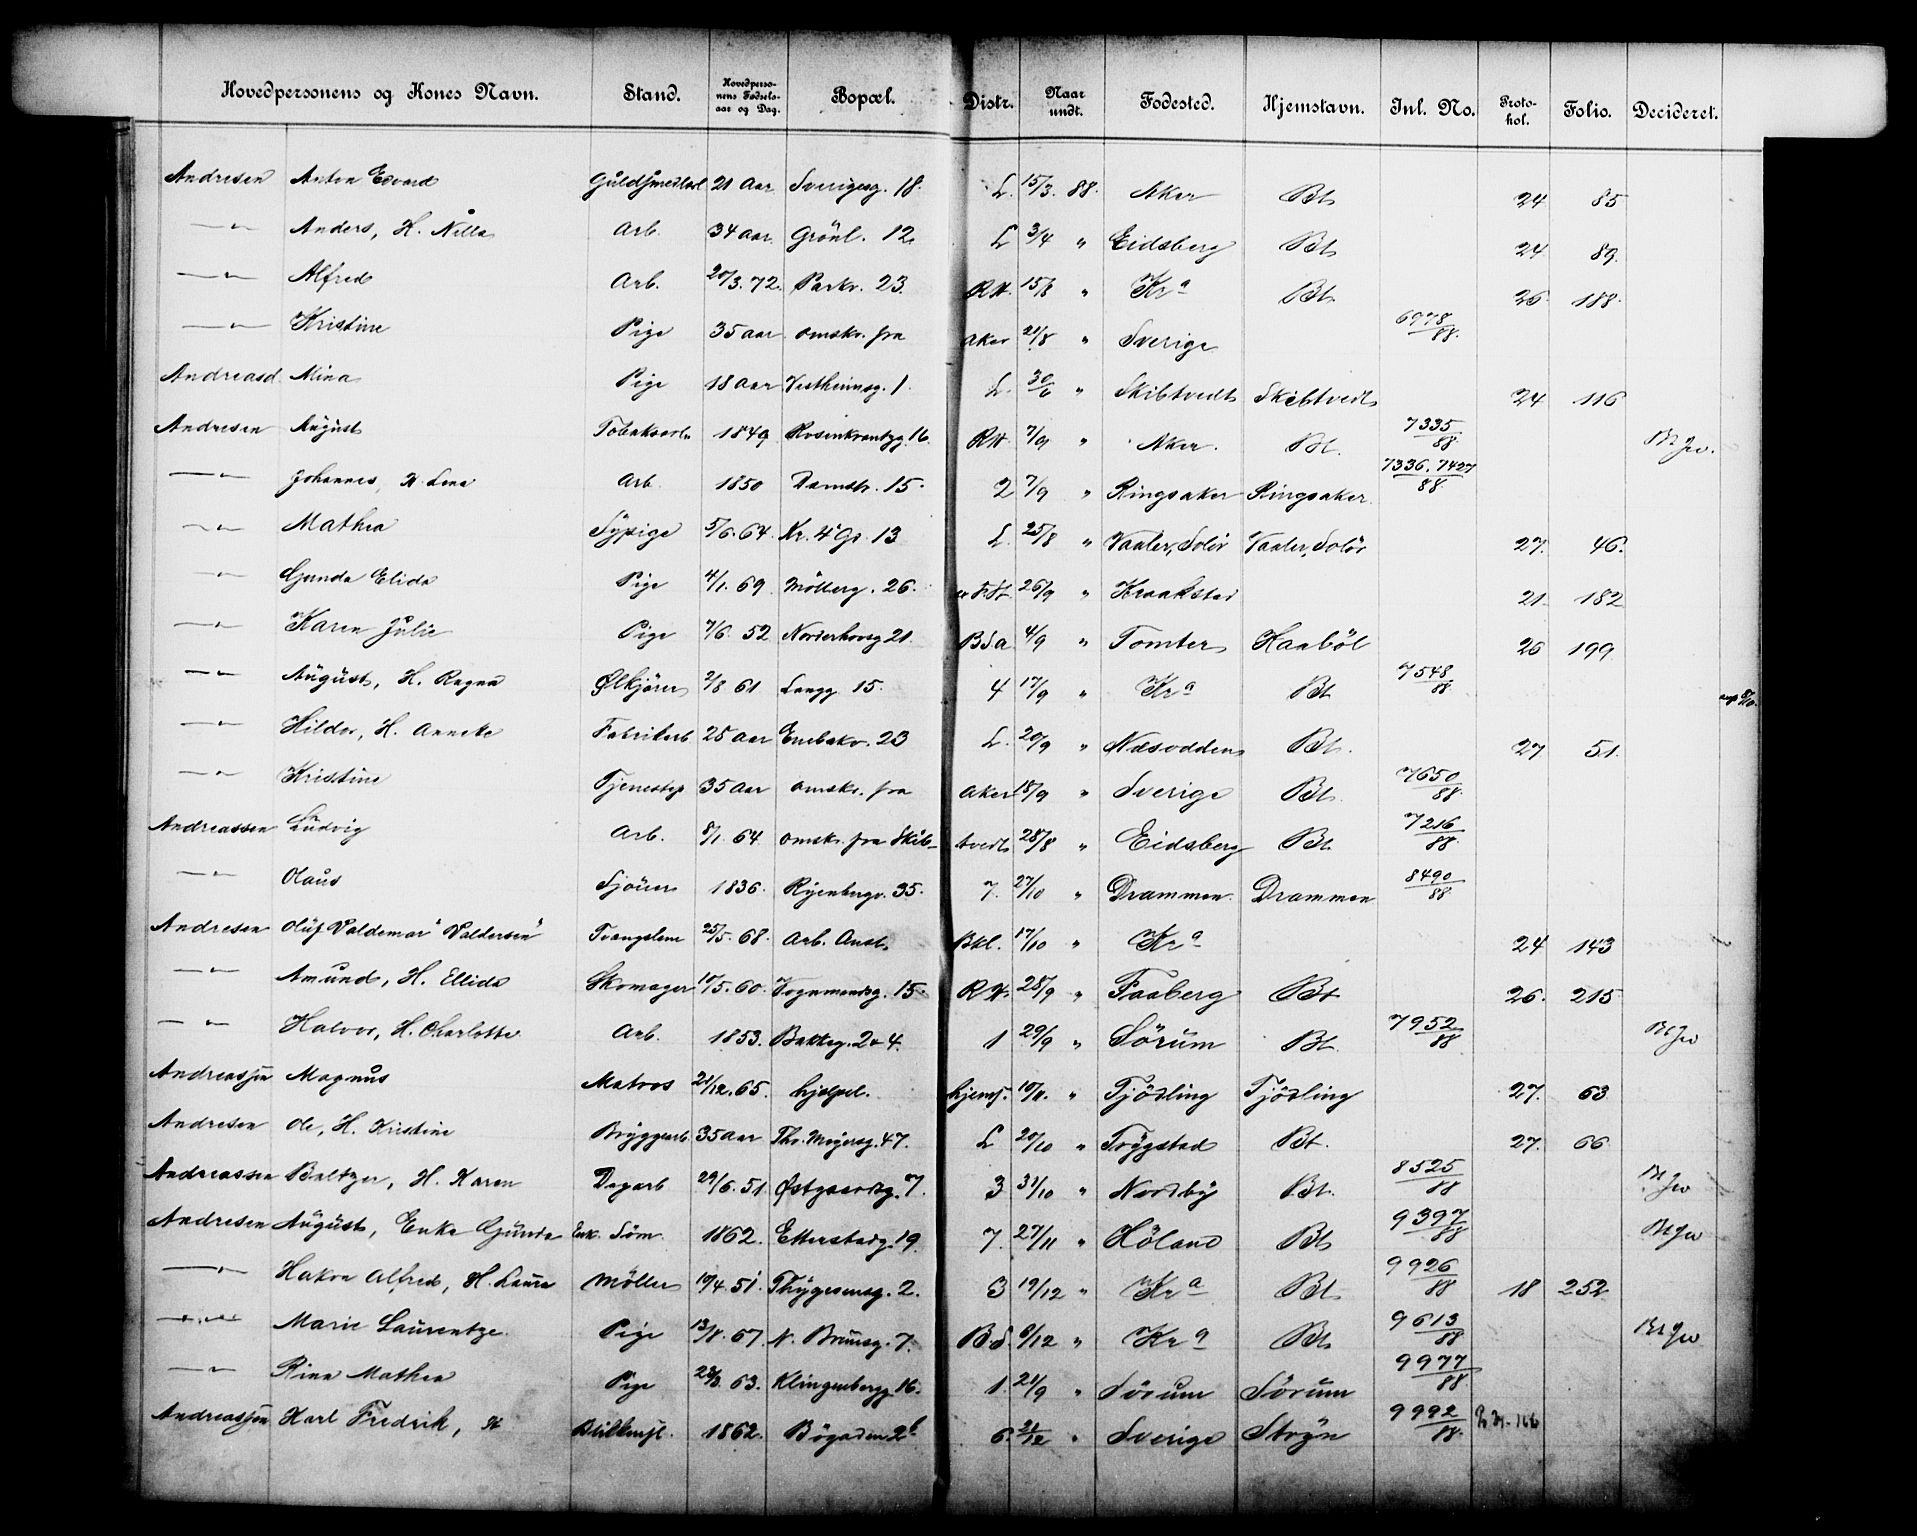 Hovedpersonens og Kones Navn. Stand. Hovedperso-nens Fødsels-aar og Dag. Bopæl. Distr. Naar undt. Fødested. Hjemstavn. Inl. No. Proto-kol. Folio. Decideret.
Andresen Anton Edvard 21 Aar Sverigesg. 18. L. 15/3. 88. Aker Bt 24 85
—"— Anders, H. Nilla Arb. 34 aar Grönl. 12. L 3/4 " Eidsberg Bt 24 89.
—"— Alfred Arb. 20/3. 72. Parkv. 23. RH. 15/8 " Kra Bt 26 188.
—"— Kristine Pige 35 aar omskr. fra Aker 21/8 " Sverige 6978/88.
Andreasd. Mina Pige 18 Aar Vestheimsg. 1. L. 30/6 " Skibtvedt Skibtvedt 24 116
Andresen August 1849 Rosenkrantzg. 16. RH 7/9 " Aker. Bt. 7335/88.
—"— Johannes, H. Lena Arb. 1850 Damstr. 15. 2 7/9 " Ringsaker Ringsaker. 7336, 7427/88.
—"— Mathea Sypige 5/6. 64. Kr. 4 G. 13 L. 25/8 " Vaaler, Solör Vaaler, Solör 27. 46.
—"— Gunda Elida Pige 4/1. 69. Möllerg. 26. 26/9 " Kraakstad 21. 182
—"— Karen Julie Pige 7/6. 52 Norderhovsg 21. BSa 4/9 " Tomter Haabøl 26 199.
—"— August, H. Ragna Ølkjører 2/8 61 Langg 15. 4 17/9 " Kra Bt 7548/88.
—"— Hildor, H. Anneke Fabrikarb 25 Aar Enebakv. 23 L. 20/9 " Næsodden Bt. 27 51.
—"— Kristine Tjenestep 35 Aar omskr. fra Aker 18/9 " Sverige Bt. 7650/88.
Andreassen Ludvig Arb. 8/1. 64. omskr. fra Skib-tvedt 28/8 " Eidsberg Bt. 7216/88.
—"— Olaus Sjöuer 1836. Ryenbergv. 35. 7. 27/10 " Drammen. Drammen 8490/88.
Andresen Oluf Valdemar "Valdersen" Tvangslem 25/5. 68. Arb. Anst. Bkl. 17/10 " Kra 24 143
—"— Amund, H. Ellida Skomager 10/5. 60. Vognmandsg. 15. RH. 28/9 " Faaberg Bt 26. 215
—"— Halvor, H. Charlotte Arb. 1853. Bakkeg. 2 4. 1 29/9 " Sörum Bt. 7952/88
Andreassen Magnus Matros 21/12. 65. hjælpel. hjems. 10/11. " Tjödling Tjödling 27. 63
Andresen Ole, H. Kristine Bryggearb. 35 Aar Th. Meyersg. 47. L 20/10 " Trygstad Bt. 27. 66
Andreassen Baltzer, H. Karen Dagarb 29/6. 51. Østgaardsg. 7. 3 31/10 " Nordby Bt. 8525/88
Andresen August, Enke Gunda Enk. Søm. 1862. Etterstadg. 19. 7. 27/11 " Höland Bt 9397/88
—"— Hakon Alfred, H. Laura Møller 10/4. 51. Thygesensg. 2. 3 19/12 " Kra Bt 9926/88 18 252.
—"— Marie Laurentze Pige 13/8. 67. N. Brunsg. 7. B.S. 6/12 " Kra Bt 9613/88
—"— Rina Mathea Pige 63. Klingenbergg. 16. 1. 21/9 " Sörum Sörum 9977/88.
Andreassen Karl Fredrik, H 1862. Bøgaden 2b 6. 21/12 " Sverige Stryn 9992/88.